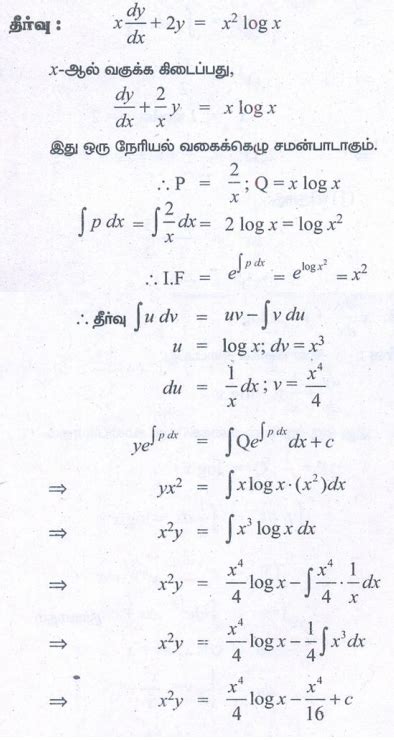 தீர்வு : x dy/dx + 2y = x² log x
x-ஆல் வகுக்க கிடைப்பது,
dy/dx + 2/x y = x log x
இது ஒரு நேரியல் வகைக்கெழு சமன்பாடாகும்.
∴ P = 2/x ; Q = x log x
∫ p dx = ∫ 2/x dx = 2 log x = log x²
∴ I.F = e^∫p dx = e^log x² = x²
∴ தீர்வு ∫ u dv = uv − ∫ v du
u = log x; dv = x³
du = 1/x dx ; v = x⁴/4
ye^∫p dx = ∫ Qe^∫p dx dx + c
⇒ yx² = ∫ x log x · (x²) dx
⇒ x²y = ∫ x³ log x dx
⇒ x²y = x⁴/4 log x − ∫ x⁴/4 · 1/x dx
⇒ x²y = x⁴/4 log x − 1/4 ∫ x³ dx
⇒ x²y = x⁴/4 log x − x⁴/16 + c